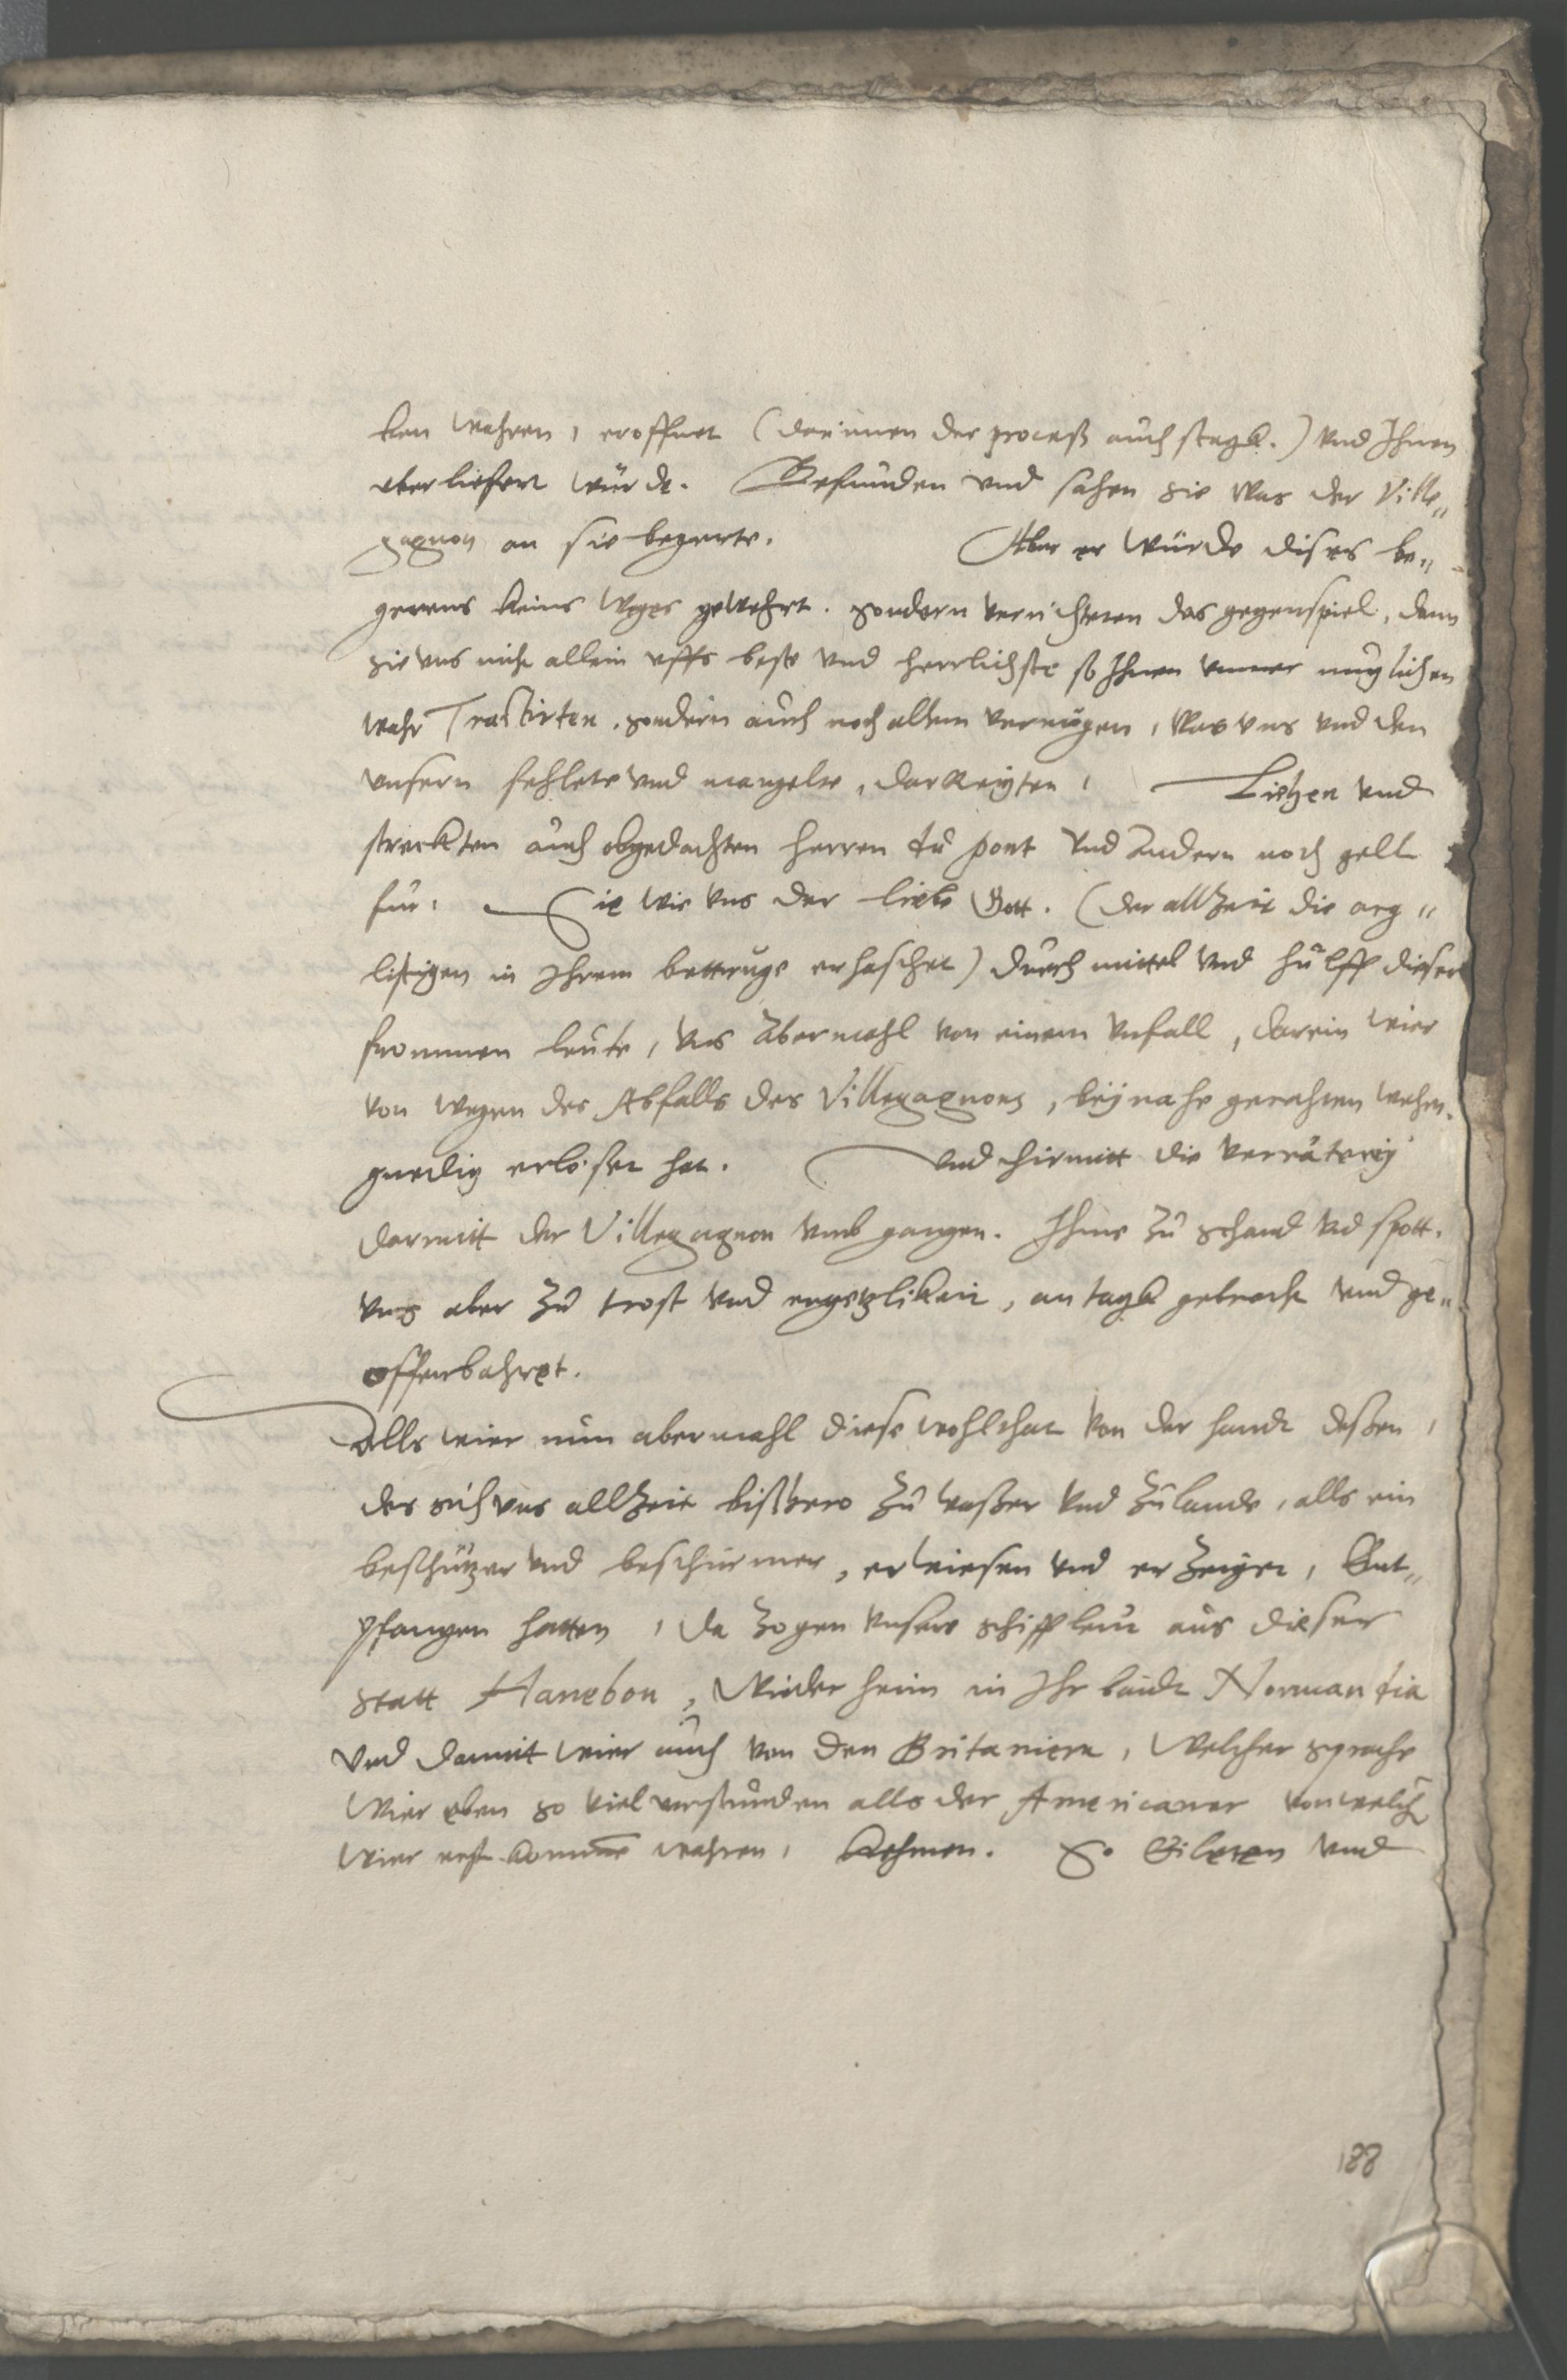 ken wahren, eroffnet (darinnen der proceß auch stegk.) vnd Ihnen
vberliefert würde. Befunden vnd sahen sie was der Ville„
gagnon an sie begerte. Aber er würde dises be„
gerens keins weges gewehrt. sondern verrichteten das gegenspiel, dann
sie vns nicht allein vffs beste vnd herrlichste so Ihnen immer müglichen
wahr Tractirten. sondern auch noch allem vermügen, was vns vnd den
vnsern fehlete vnd mangelte, darreyten, Liehen vnd
streckten auch obgedachten herren du pont vnd andern noch gelt
für. Sie wie vns der liebe Gott. (der allzeit die arg„
listigen in Ihrem bettruge erhaschet) durch mittel vnd hülff dieser
frommen leute, vns abermahl von einem vnfall, darein wier
von wegen des Abfalls des Villegagnons, beÿnahe gerahten wehrn.
gnedig erlöset hat. vnd hirmitt die verräterey
darmitt der Villegagnon vmbgangen. Ihme zu schand vnd spott.
vns aber zu trost vnd ergetzlikeit, an tagk gebracht vnd ge„
offenbahret.
Alls wier nun abermahl diese wohlthat von der handt deßen,
der sich vns allzeit bißhero zu waßer vnd zu lande, alls ein
beschützer vnd beschirmer, erwiesen vnd erzeiget, Ent„
pfangen hatten, da zogen vnsere schiffleut aus dieser
statt Hanebon, wieder heim in Ihr landt Normandia
vnd damit wier auch von den Britaniern, welcher sprache
wier eben so viel verstunden alls der Americaner von welch
wier erst kommen wahren, kehmen. So Eileten vnd
188